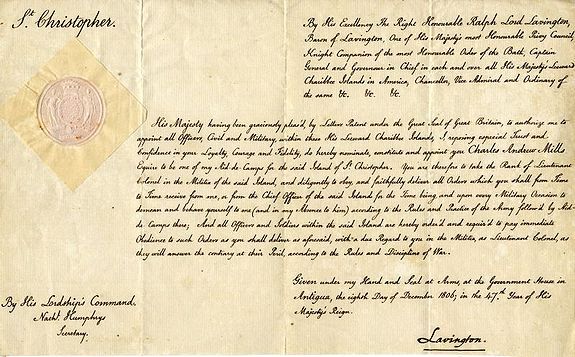 St. Christopher.
By His Excellency The Right Honourable Ralph Lord Lavington,
Baron of Lavington, One of His Majesty's most Honourable Privy Council,
Knight Companion of the most Honourable Order of the Bath, Captain
General and Governour in Chief in and over all His Majesty's Leeward
Charibbee Islands in America, Chancellor, Vice Admiral and Ordinary of
the same &c. &c. &c.
His Majesty having been graciously pleas'd, by Letters Patent under the Great Seal of Great Britain, to authorize me to
appoint all Officers, Civil and Military, within these His Leeward Charibbee Islands, I, reposing especial Trust and
Confidence in your Loyalty, Courage and Fidelity, do hereby nominate, constitute and appoint you Charles Andrew Mills
Esquire to be one of my Aid-de Camps for the said Island of St Christopher. You are therefore to take the Rank of Lieutenant
Colonel in the Militia of the said Island, and diligently to obey, and faithfully deliver all Orders which you shall from Time
to Time receive from me, or from the Chief Officer of the said Island for the Time being, and upon every Military Occasion to
demean and behave yourself to me (and in my Absence to him) according to the Rules and Practice of the Army follow'd by Aid-
de Camps there; And all Officers and Soldiers within the said Island are hereby order'd and requir'd to pay immediate
Obedience to such Orders as you shall deliver as aforesaid, with a due Regard to you in the Militia as Lieutenant Colonel, as
they will answer the contrary at their Peril, according to the Rules and Discipline of War.
Given under my Hand and Seal at Arms, at the Government House in
Antigua, the eighth Day of December 1806; in the 47th Year of His
Majesty's Reign.
By His Lordship's Command,
Nathl. Humphrys
Secretary.
Lavington.